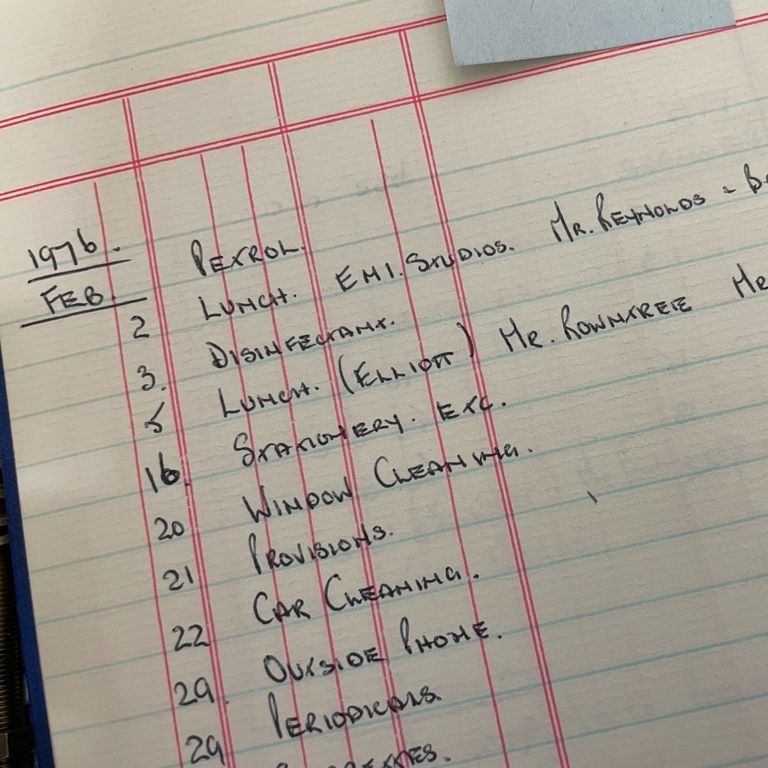 1976.
FEB. PETROL.
2 LUNCH. EMI. STUDIOS. MR. REYNOLDS -
3. DISINFECTANT.
5 LUNCH. (ELLIOTT) MR. ROWNTREE MR
16. STATIONERY. ETC.
20 WINDOW CLEANING.
21 PROVISIONS.
22 CAR CLEANING.
29. OUTSIDE PHONE.
29 PERIODICALS.